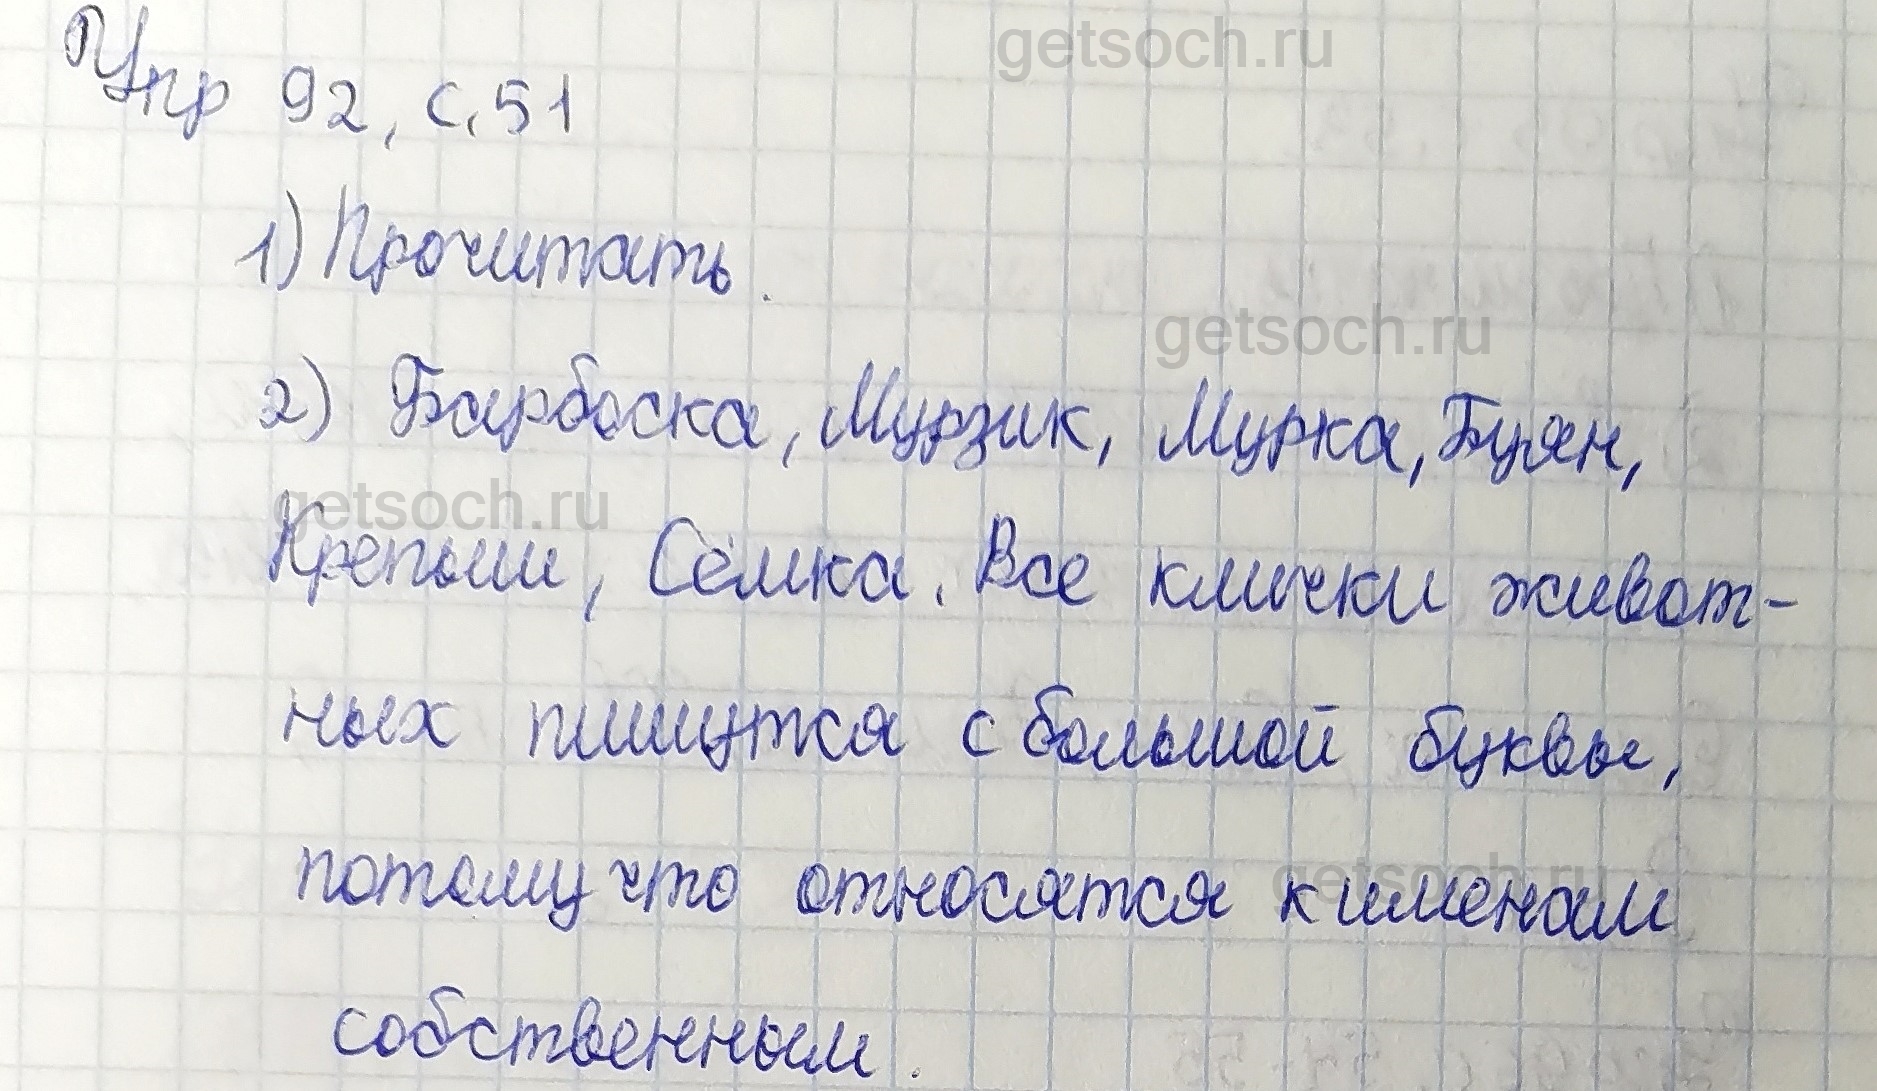 getsoch.ru
Упр 92, с. 51
1) Прочитать.
getsoch.ru
2) Барбоска, Мурзик, Мурка, Буян,
getsoch.ru
Крепыш, Сёмка. Все клички живот-
ных пишутся с большой буквы,
getsoch.ru
потому что относятся к именам
собственным.